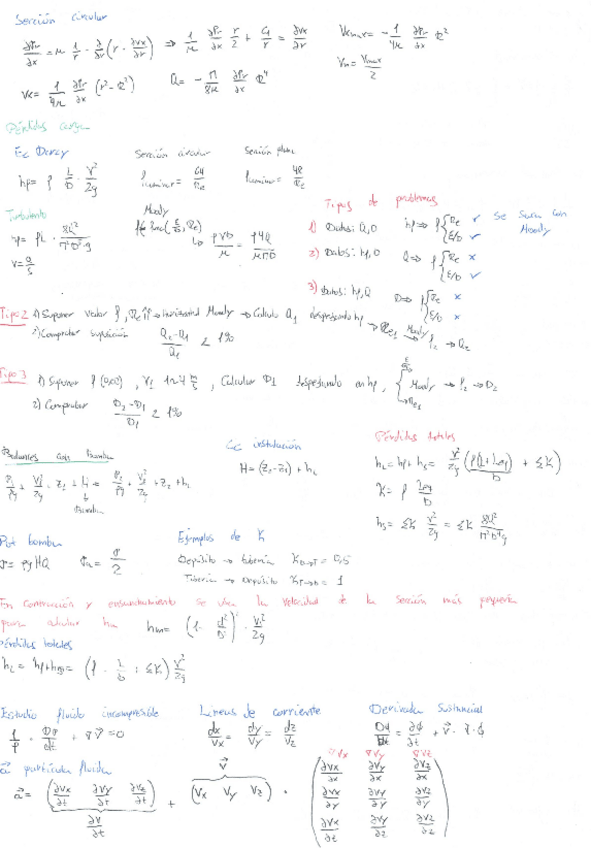 Sección circular
∂Pr/∂x = μ 1/r · ∂/∂r (r · ∂vx/∂r) ⇒ 1/μ ∂Pr/∂x r/2 + C1/r = ∂vx/∂r
Vxmax = - 1/4μ ∂Pr/∂x R²
Vx = 1/4μ ∂Pr/∂x (r² - R²)
Q = - π/8μ ∂Pr/∂x R⁴
Vm = Vmax/2
Pérdidas carga
Ec Darcy
hf = f L/D · V²/2g
Sección circular
flaminar = 64/Re
Sección plana
flaminar = 48/Re
Turbulento
hf = fL · 8Q²/π²D⁵·g
Moody
f = func(ε/D, Re)
ρVD/μ = ρ4Q/μπD
Tipos de problemas
1) Datos: Q, D hf ⇒ f { Re ✓ ε/D ✓ Se saca con Moody
2) Datos: hf, D Q ⇒ f { Re × ε/D ✓
3) Datos: hf, Q D ⇒ f { Re × ε/D ×
Tipo 2 1) Suponer valor f, Re ↑↑ → horizontal Moody → Calculo Q1 despejando hf → Re1 Moody → f2 → Q2
2) Comprobar suposición Q2-Q1/Q1 < 1%
Tipo 3 1) Suponer f (0,02), V1 1~4 m/s, Calcular D1 despejando en hf, { ε/D Re1 Moody → f2 → D2
2) Comprobar D2-D1/D1 ≤ 1%
Balances con Bomba
Bomba
Ec instalación
H = (z2 - z1) + hL
Pérdidas totales
hL = hf + hs = V²/2g (f(L+Leq)/D + ΣK)
K = f Leq/D
hs = ΣK V²/2g = ΣK 8Q²/π²D⁴g
Pot bomba
= ρgHQ
Ejemplos de K
Depósito → tubería KD→T = 0,5
Tubería → Depósito KT→D = 1
En contracción y ensanchamiento se usa la velocidad de la sección más pequeña
para calcular hm hm = (1 - d²/D²)² · V²/2g
Pérdidas totales
Estudio fluido incompresible
1/ρ · Dρ/dt + ∇V⃗ = 0
Líneas de corriente
dx/Vx = dy/Vy = dz/Vz
Derivada sustancial
Dφ/Dt = ∂φ/∂t + V⃗ · ∇ · φ
a⃗ partícula fluida
∇Vx ∇Vy ∇Vz
a⃗ = (∂Vx/∂t ∂Vy/∂t ∂Vz/∂t) + (Vx Vy Vz) · (∂Vx/∂x ∂Vy/∂x ∂Vz/∂x
∂Vx/∂y ∂Vy/∂y ∂Vz/∂y
∂Vx/∂z ∂Vy/∂z ∂Vz/∂z)
∂V/∂t